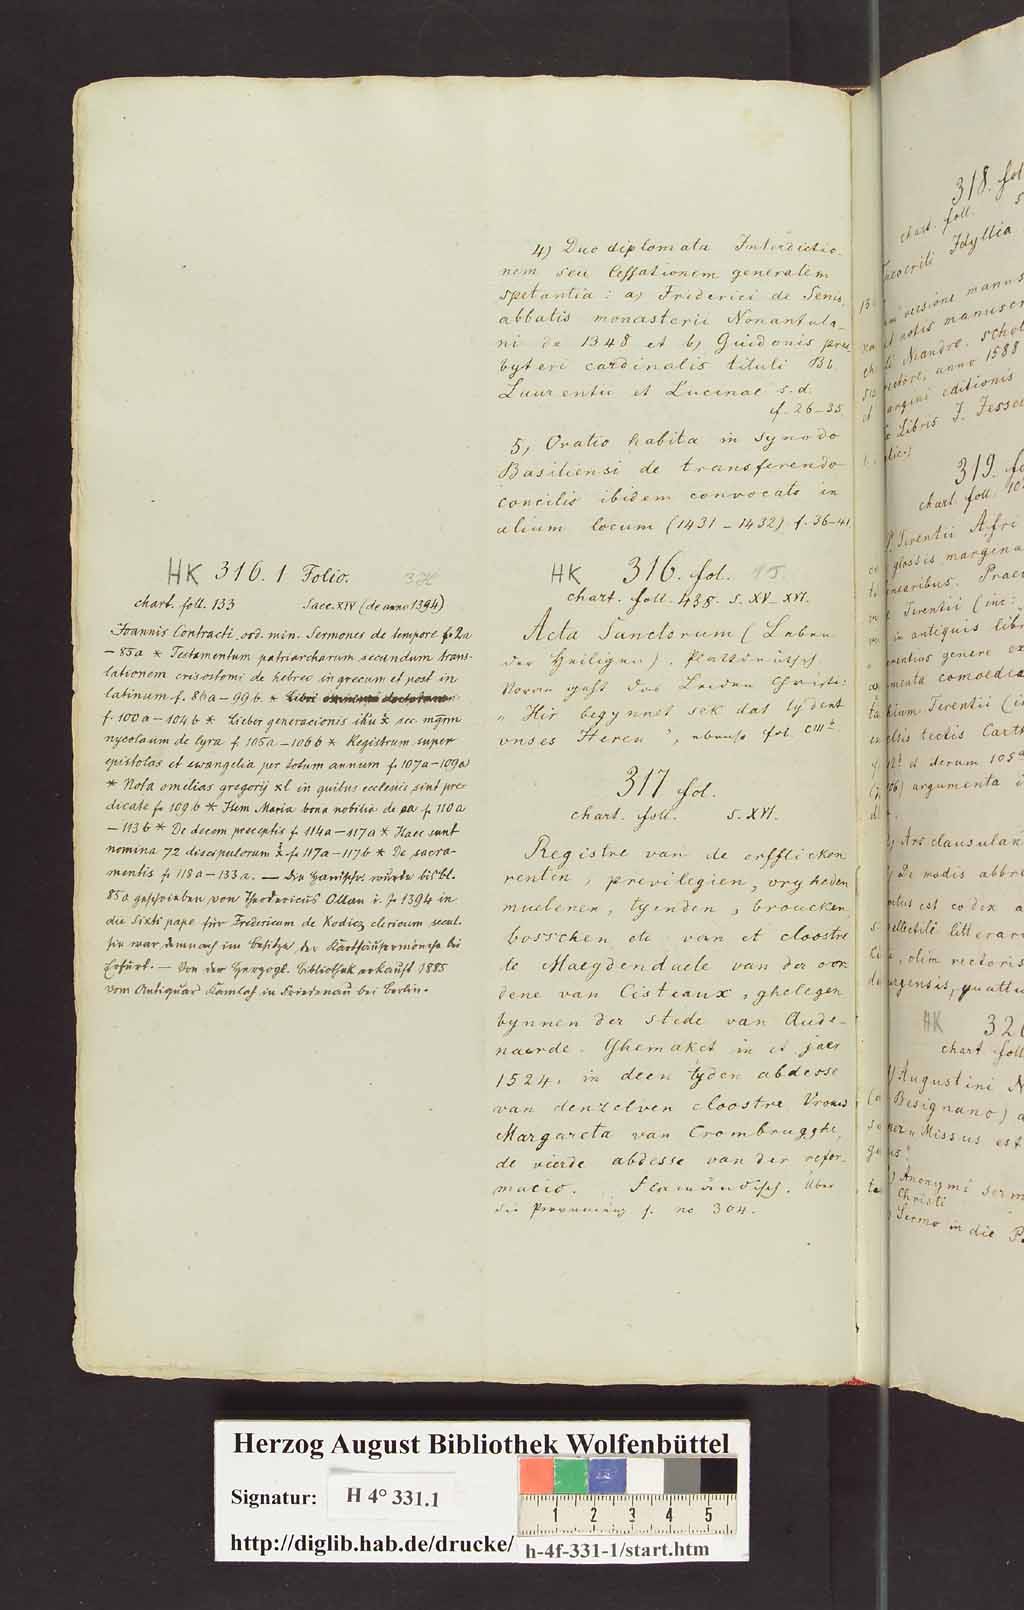 4) Duo diplomata Interdictio-
nem seu Cessationem generalem
spetantia: a) Friderici de Senis,
abbatis monasterii Nonantula-
ni de 1348 et b) Guidonis pres-
byteri cardinalis tituli Bb.
Laurentii et Lucinae s. d.
f. 26-35.
5) Oratio habita in Synodo
Basiliensi de transferendo
concilio ibidem convocato in
alium locum (1431-1432) f. 36-41
HK 316. 1 Folio.
chart. foll. 133 Saec. XIV (de anno 1394)
Joannis Contracti, ord. min. Sermones de tempore f. 2a
- 85a * Testamentum patriarcharum secundum trans-
lationem crisostomi de hebreo in grecum et post in
latinum f. 86a - 99b. * Libri
f. 100a - 104b * Lieber generacionis ihu x sec. mgrm
nycolaum de lyra f. 105a - 106b * Registrum super
epistolas et ewangelia per totum annum f. 107a - 109a
* Nota omelias gregorij xl in quibus ecclesiis sint pre-
dicate f. 109b * Item Maria bona nobilia de ea f. 110a
- 113b * De decem preceptis f. 114a - 117a * Haec sunt
nomina 72 discipulorum x f. 117a - 117b * De sacra-
mentis f. 118a - 133a. - Die Handschr. wurde bis bl.
85a geschrieben von Theodericus Ollan i. J. 1394 in
die Sixti pape für Fredericum de Kodicz clericum secul.
sie war demnach im Besitze der Karthäusermönche bei
Erfurt. - Von der Herzogl. Bibliothek erkauft 1885
vom Antiquar Kamlah in Friedenau bei Berlin.
HK 316. fol.
chart. foll. 438. s. XV-XVI.
Acta Sanctorum (Leben
der Heiligen). Plattdeutsch
Voran geht das Leiden Christi:
"Hir begynnet sek dat lydent
vnses Heren", ebenso fol. CIII
317 fol.
chart. foll. s. XVI.
Registre van de erfflicken
renten, previlegien, vryheden
muelenen, tyenden, broucken,
bosschen etc. van et cloostre
te Maegdendaele van der oor-
dene van Cisteaux, ghelegen
bynnen der stede van Aude-
naerde. Ghemaket in et jaer
1524. in deen tyden abdesse
van denzelven cloostre Vrouw
Margareta van Crombrugghe,
de vierde abdesse van der refor-
macio. Flamändisch. Über
die Provenienz s. no 304.
318. fol
chart. foll.
Theocriti Idyllia
versione manus
et notis manuscr
anno 1588
margini editionis
Libris J. Jesse
319. f
chart foll. 10
Terentii Afri
glossis margina
Terentii (inc:
in antiquis libr
genere ex
menta comoedia
Terentii (in
d. derum 105a
argumenta
Ars clausulan
De modis abbre
est codex a
litterar
olim rectoris
quattu
HK 320
chart foll
Augustini N
Besignano) a
"Missus est
Anonymi serm
Christi
Sermo in die P
Herzog August Bibliothek Wolfenbüttel
Signatur: H 4° 331.1
1 2 3 4 5
http://diglib.hab.de/drucke/ h-4f-331-1/start.htm